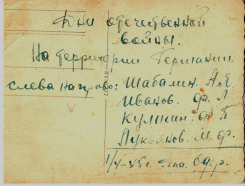 Дни отечественной
войны.
На территории Германии
слева направо: Шабалин. А.Я.
Иванов. Ф. Л
Кулкин. Ф. П
Лукьянов. М. Ф.
1/V-45г.